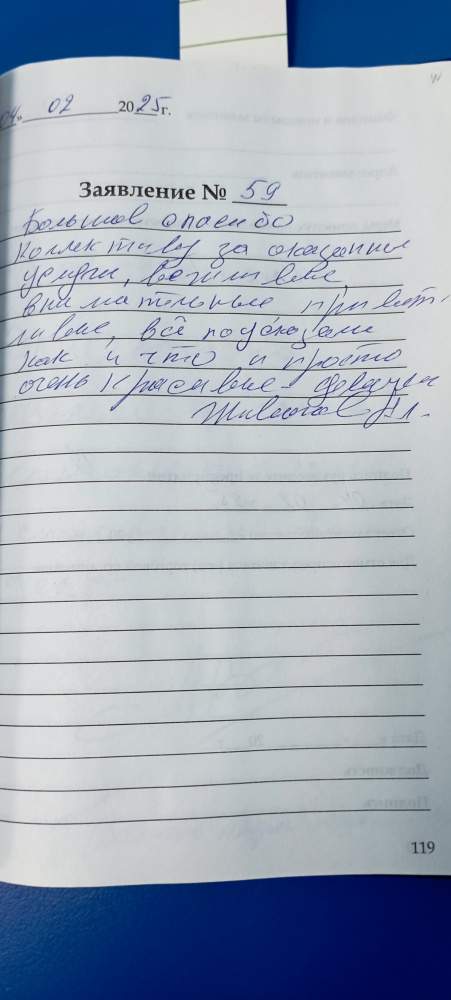 04» 02 2025г.
Заявление № 59
Большое спасибо
Коллективу за оказанные
услуги, вежливые,
внимательные привет-
ливые, всё подсказали
как и что и просто
очень красивые девочки
119